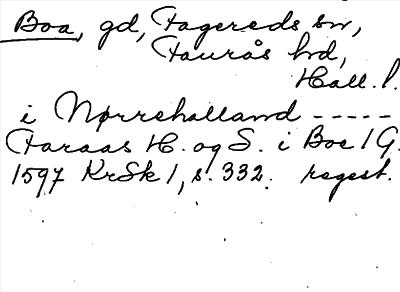 Boa, gd, Fagereds sn,
Faurås hd,
Hall. l.
i Nørrehalland -----
Faraas H. og S. i Boe 1 G.
1597 KrSk 1, s. 332. regest.